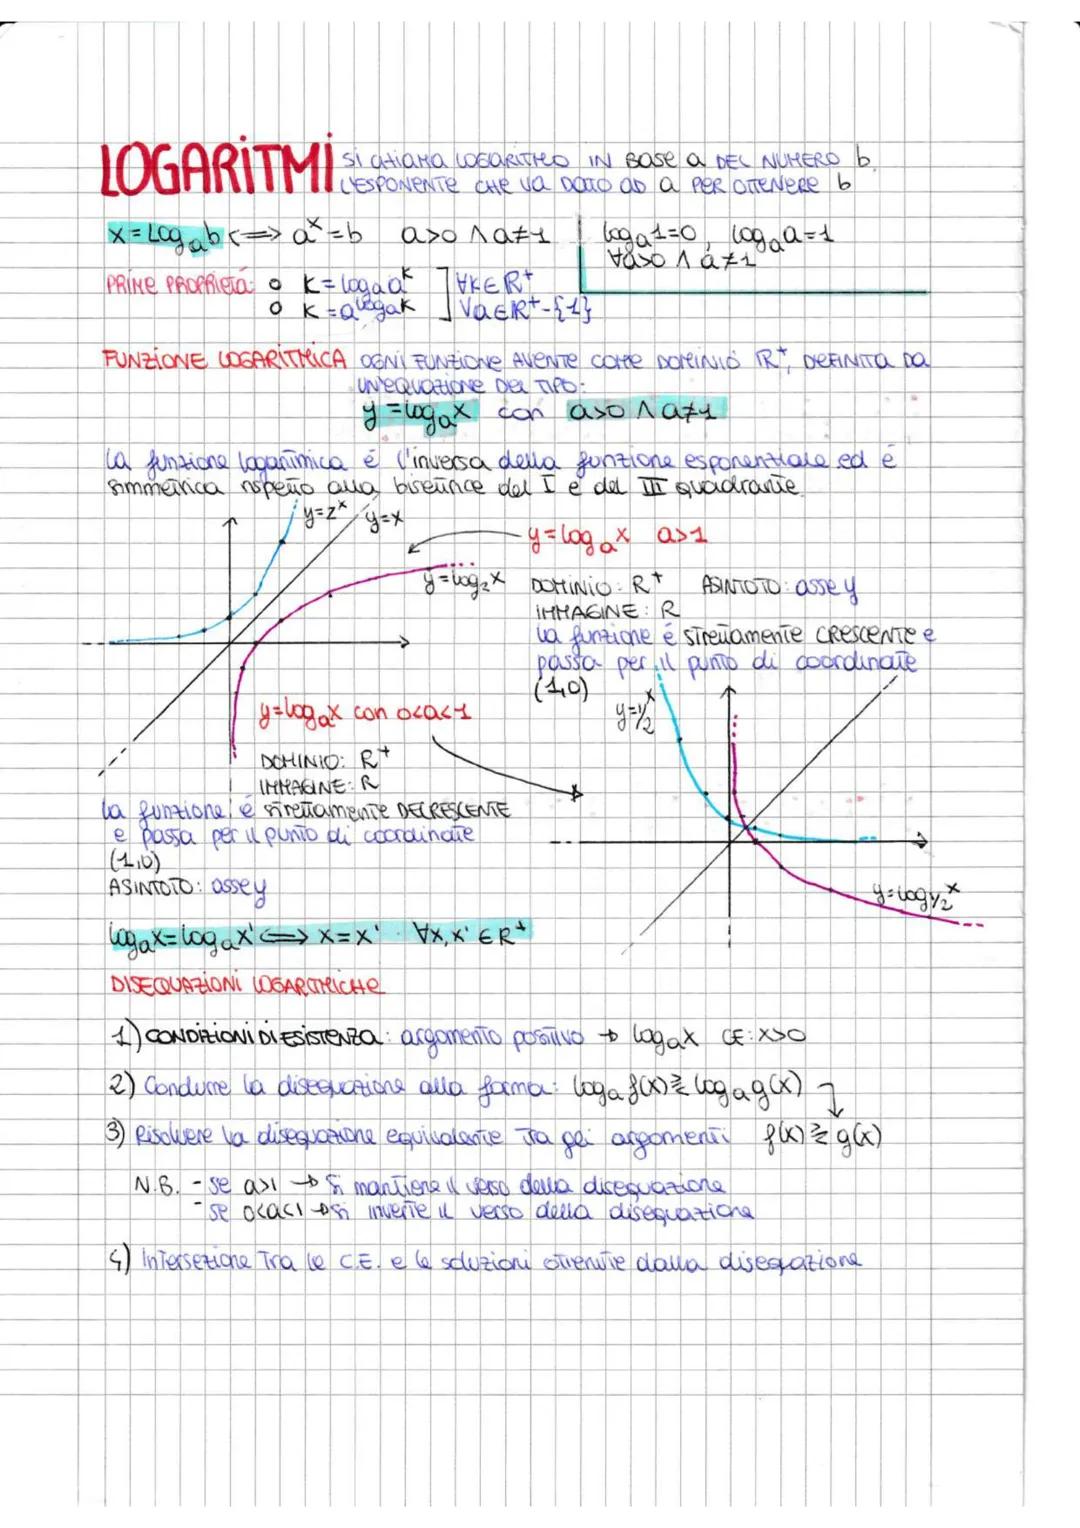 LOGARITMI SI CHIAMA LOGARITMO IN BASE a DEL NUMERO b,
L'ESPONENTE CHE VA DATO AD a PER OTTENERE b
x = Log_a b <=> a^x = b a>0 ∧ a≠1 log_a 1=0, log_a a=1
∀a>0 ∧ a≠1
PRIME PROPRIETÀ: o K = log_a a^K ] ∀K∈R+
o K = a^log_a K ] ∀a∈R+-{1}
FUNZIONE LOGARITMICA OGNI FUNZIONE AVENTE COME DOMINIO R+, DEFINITA DA
UN'EQUAZIONE DEL TIPO:
y = log_a x con a>0 ∧ a≠1
La funzione logaritmica é l'inversa della funzione esponenziale ed é
simmetrica rispetto alla bisettrice del I e del III quadrante.
y=2^x y=x
y=log_a x a>1
y=log_2 x DOMINIO: R+ ASINTOTO: asse y
IMMAGINE: R
La funzione é strettamente CRESCENTE e
passa per il punto di coordinate
(1,0)
y=1/2^x
y=log_a x con 0<a<1
DOMINIO: R+
IMMAGINE: R
La funzione é strettamente DECRESCENTE
e passa per il punto di coordinate
(1,0)
ASINTOTO: asse y
y=log_1/2 x
log_a x = log_a x' <=> x=x' ∀x,x' ∈R+
DISEQUAZIONI LOGARITMICHE
1) CONDIZIONI DI ESISTENZA: argomento positivo → log_a x CE: x>0
2) Condurre la disequazione alla forma: log_a f(x) ≷ log_a g(x)
3) Risolvere la disequazione equivalente tra gli argomenti f(x) ≷ g(x)
N.B. - se a>1 → si mantiene il verso della disequazione
- se 0<a<1 → si inverte il verso della disequazione
4) Intersezione tra le C.E. e le soluzioni ottenute dalla disequazione